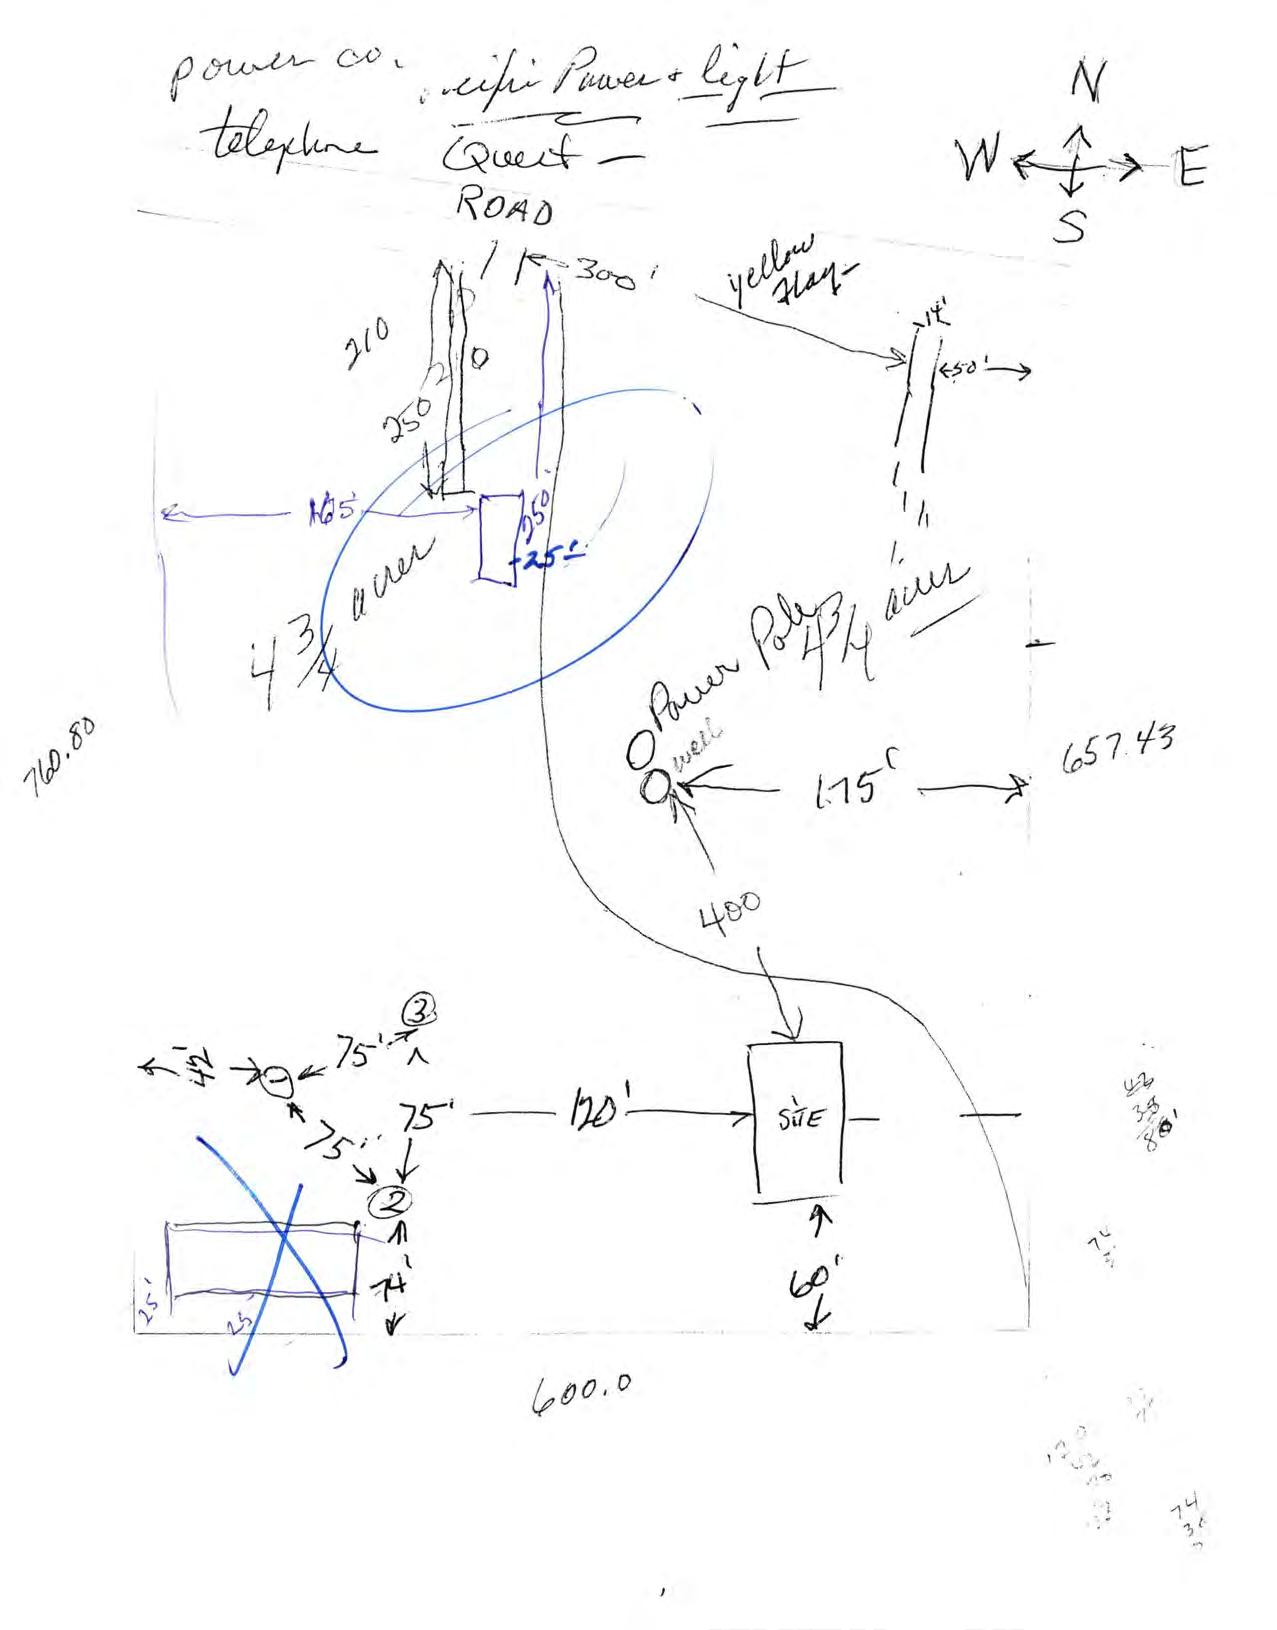 power co. Power & light
telephone Quest —
ROAD
N
W E
S
300'
yellow
flag
14'
50'
210
250
0
165'
250'
25'
4 3/4 acres
4 3/4 acres
Power Pole
well
175'
657.43
760.80
400
3
42'
1
75'
75'
75'
120'
SITE
2
74'
60'
25'
25'
600.0
42
38
80'
74
74